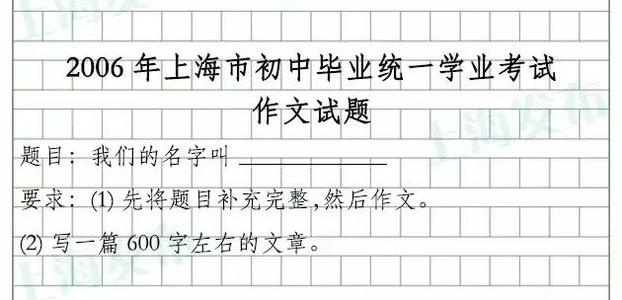 上海发布
2006 年上海市初中毕业统一学业考试
作文试题
上海发布
题目：我们的名字叫
要求：(1) 先将题目补充完整，然后作文。
(2) 写一篇 600 字左右的文章。
上海发布